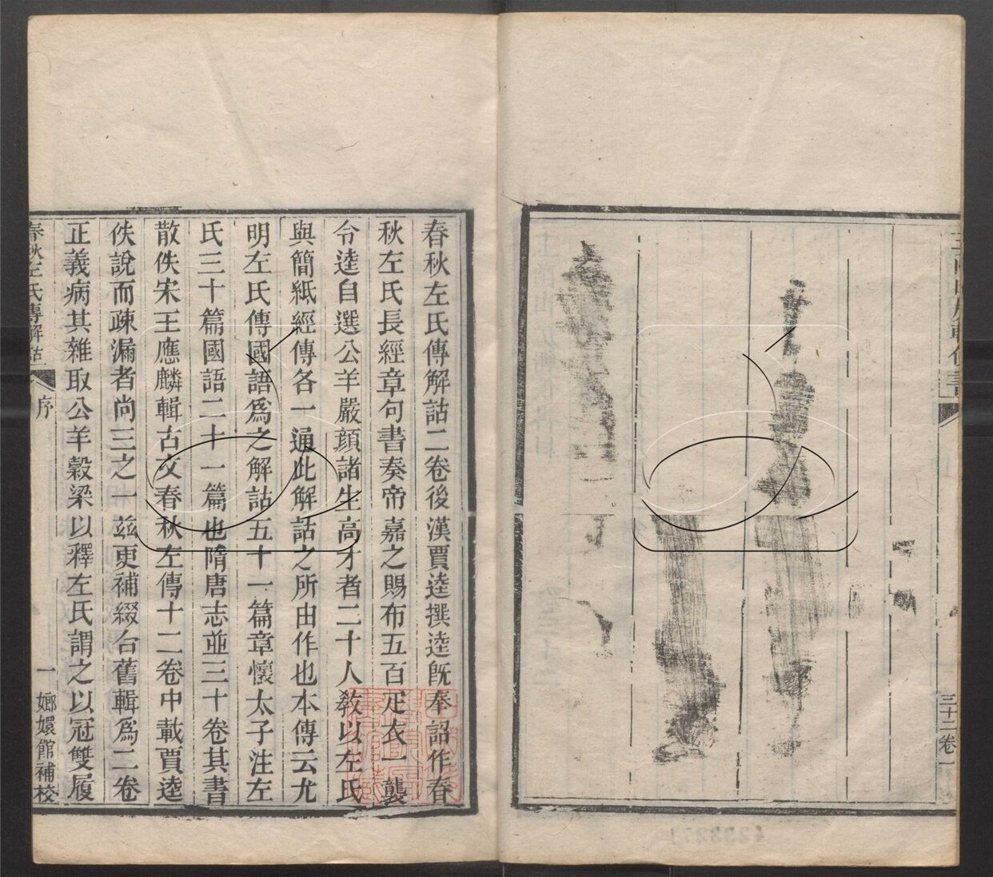 三十二卷一
春秋左氏傳解詁二卷後漢賈逵撰逵旣奉詔作春
秋左氏長經章句書奏帝嘉之賜布五百疋衣一襲
令逵自選公羊嚴顏諸生高才者二十人敎以左氏
與簡紙經傳各一通此解詁之所由作也本傳云尤
明左氏傳國語爲之解詁五十一篇章懷太子注左
氏三十篇國語二十一篇也隋唐志並三十卷其書
散佚宋王應麟輯古文春秋左傳十二卷中載賈逵
佚說而疎漏者尚三之一兹更補綴合舊輯爲二卷
正義病其雜取公羊穀梁以釋左氏謂之以冠雙履
春秋左氏傳解詁 序 一 嫏嬛館補校